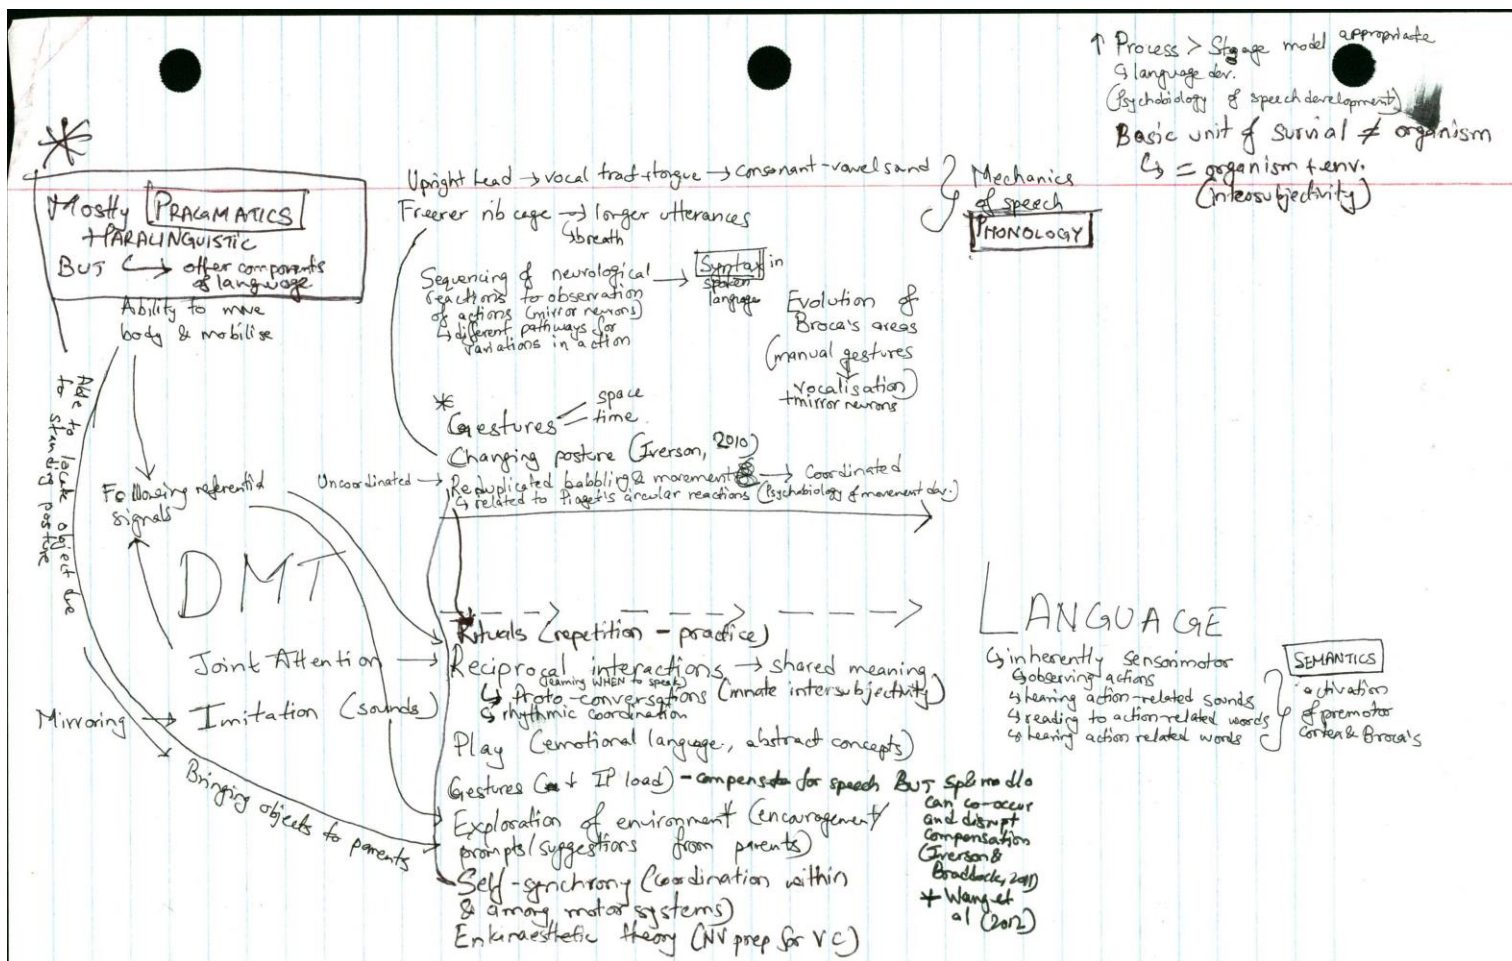 ↑ Process > Stage model appropriate
↳ language dev.
(Psychobiology of speech development)
Basic unit of survial ≠ organism
↳ = organism + env.
(intersubjectivity)
Mostly PRAGMATICS
+ PARALINGUISTIC
BUT ↳ other components
of language
Ability to move
body & mobilise
Able to locate object due
to standing posture
Following referential
signals
DMT
Joint Attention →
Mirroring → Imitation (sounds)
Bringing objects to parents
Upright head → vocal tract + tongue → consonant-vowel sound
Freerer rib cage → longer utterances
↳ breath
Mechanics
of speech
PHONOLOGY
Sequencing of neurological
reactions to observation
of actions (mirror neurons)
↳ different pathways for
variations in action
→ Syntax in
spoken
language
Evolution of
Broca's areas
(manual gestures
↓
vocalisation)
+ mirror neurons
* Gestures
space
time
Changing posture (Iverson, 2010)
Uncoordinated → Reduplicated babbling & movement → Coordinated
↳ related to Piaget's circular reactions (Psychobiology of movement dev.)
Rituals (repetition - practice)
Reciprocal interactions → shared meaning
(learning WHEN to speak)
↳ Proto-conversations (innate intersubjectivity)
↳ rhythmic coordination
Play (emotional language, abstract concepts)
Gestures (↓ IP load) - compensate for speech BUT
can co-occur
and disrupt
compensation
(Iverson &
Braddock, 2011)
+ Wang et
al (2012)
Exploration of environment (encouragement/
prompts/suggestions from parents)
Self-synchrony (coordination within
& among motor systems)
Enkinaesthetic theory (NV prep for VC)
LANGUAGE
↳ inherently sensorimotor
↳ observing actions
↳ hearing action-related sounds
↳ reading to action-related words
↳ hearing action related words
SEMANTICS
activation
of premotor
cortex & Broca's